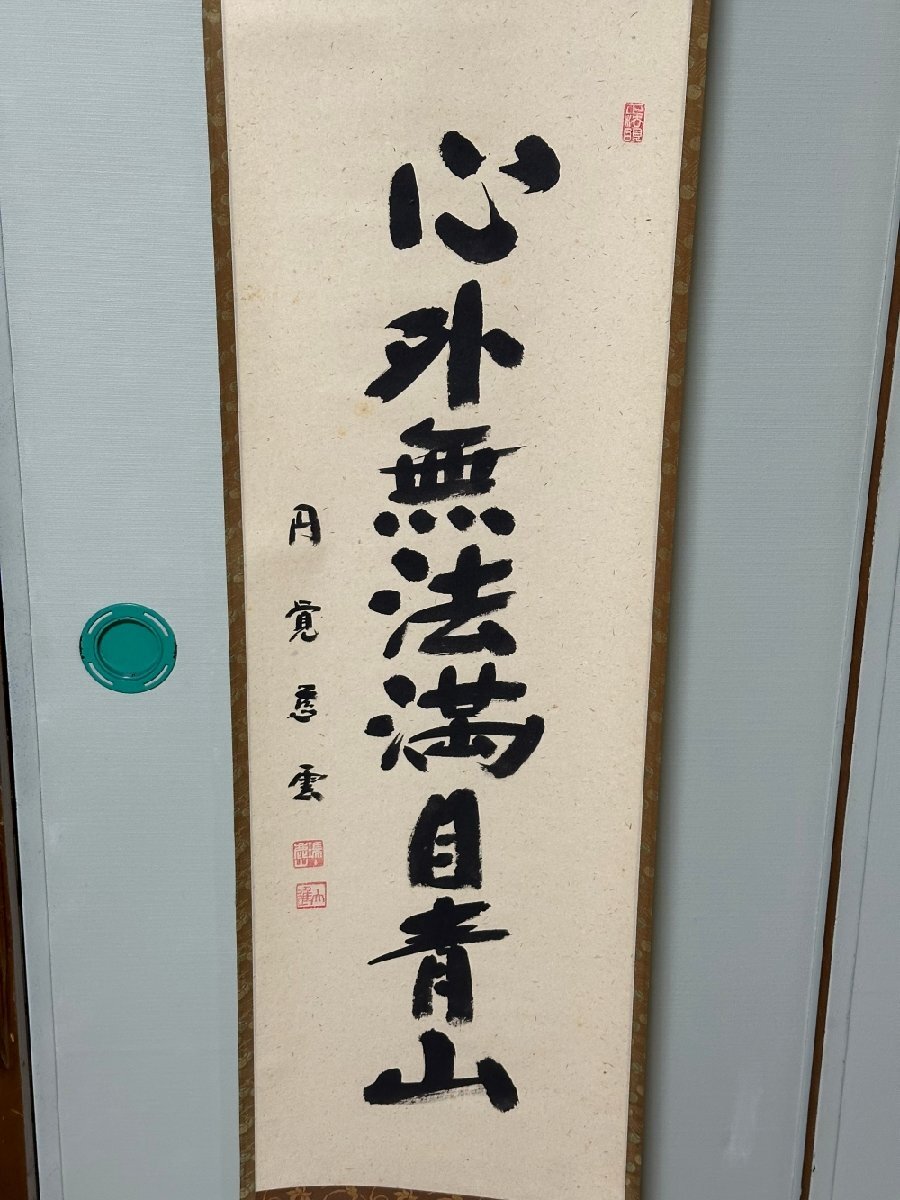 心外無法満目青山
円覚慈雲